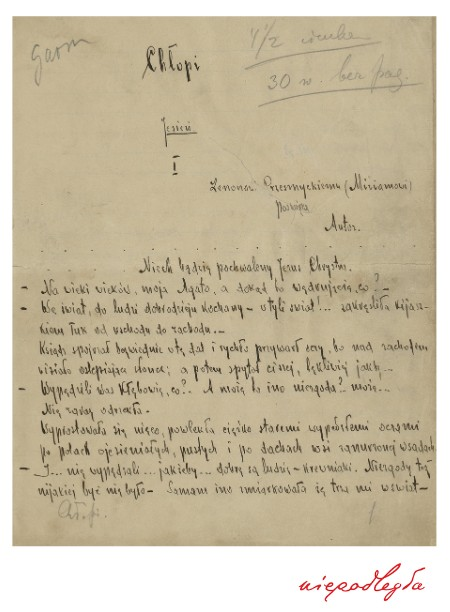 garm
4 1/2
30 w. bez pag.
Chłopi
Jesień
I
Zenonowi Przesmyckiemu (Miriamowi)
Autor.
Niech będzie pochwalony Jezus Chrystus.
— Na wieki wieków, moja Agato, a dokąd to wędrujecie, co? —
— We świat, do ludzi dobrodzieju kochany — w tyli świat!... zakreśliła kijasz-
kiem łuk od wschodu do zachodu. —
Ksiądz spojrzał bezwiednie w tę dal i rychło przywarł oczy, bo nad zachodem
wisiało oślepiające słońce; a potem spytał ciszej, lękliwiej jakby —
— Wypędzili was Kłębowie, co?.. A może to ino niezgoda?.. może...
Nie zaraz odrzekła.
Wyprostowała się nieco, powlekła ciężko staremi wypełzłemi oczami
po polach ojesieniałych, pustych i po dachach wsi zanurzonej w sadach.
— I... nie wypędzali... jakieby... dobrzy są ludzie — krewniaki. Niezgody też
nijakiej być nie było — Samam ino zmiarkowała iż trza mi w świat —
1
niepodległa